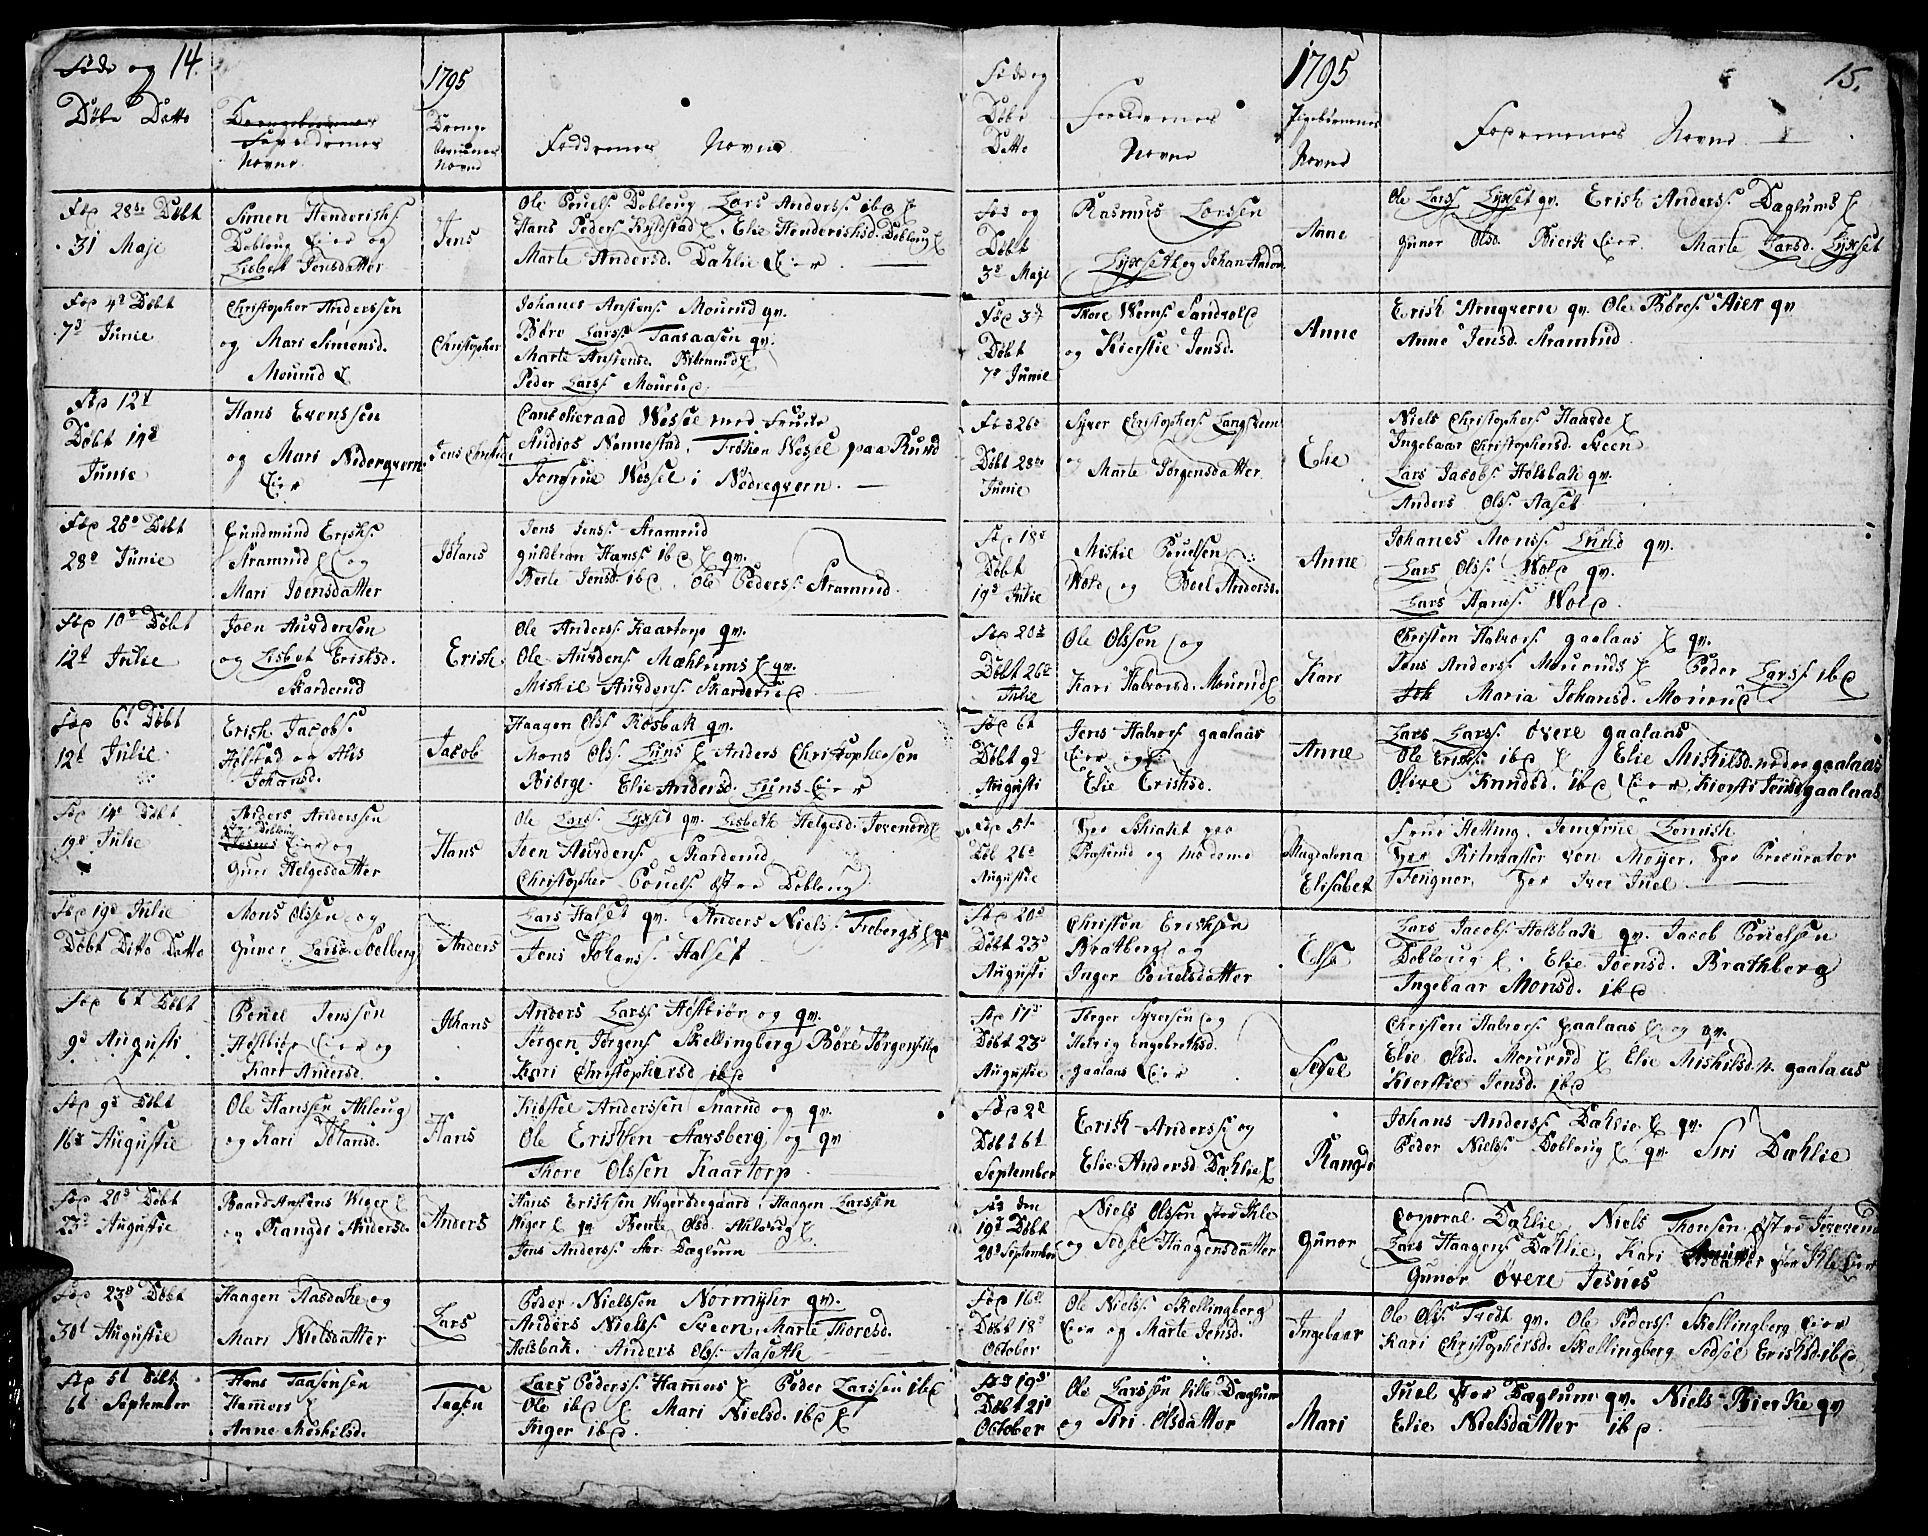 Føde og 14.
Døbe Datto
Forældrenes
Navne
1795
Drenge
børnenes
Navne
Faddernes Navne
Fød 28de Døbt
31 Maje
Simen Henderichs
Dobloug Eier og
Lisbeth Jensdatter
Jens
Ole Pouels Dobloug Lars Anderss. ibd
Hans Peders Kyldstad Elie Henderichsd. Dobloug
Marte Andersd. Dahlie Eier
Fød 4d Døbt
7d Junie
Christopher Anderssen
og Mari Simensd.
Mourud
Christopher
Johanes Anstens. Mourud qv.
Børe Larss. Taasaasen qv.
Marte Anstensd.
Peder Larss. Mourud
Fød 12t
Døbt 14d
Junie
Hans Evenssen
og Mari Nederqvern
Eier
Jens
Cancelieraad Wessel med Frue
Andios Nonnestad, Frøken Wessel paa Rund
Jomfrue Wessel i Nedreqvern.
Fød 26d Døbt
28d Junie
Gundmund Erichs.
Aramrud og
Mari Joensdatter
Johans
Jens Jenss. Aramrud
Guldbran Hanss. ibd qv.
Berte Jensd. ibd. Ole Peders. Aramrud.
Fød 10d Døbt
12t Julie
Joen Auvdensen
og Lisbet Erichsd.
Skarderud
Erich
Ole Anderss. Kaartorp qv.
Ole Auvdens. Mæhlums qv.
Mickil Auvdens. Skarderud
Fød 6t Døbt
12t Julie
Erich Jacobs.
Holstad og
Johansd.
Jacob
Haagen Olss. Rosbak qv.
Mons Olss. Lunds Anders Christophersen
Biørge. Elie Andersd. Lunds Eier
Fød 14d Døbt
19d Julie
Anders Anderssen
Eier og
Guri Helgesdatter
Hans
Ole Larss. Lyxset qv. Lisbeth Helgesd.
Joen Auvdens. Skarderud
Christopher Pouels. østre Dobloug
Fød 19d Julie
Døbt Ditto Datto
Mons Olssen og
Guner Larsd. Soelberg
Anders
Lars Halset qv. Anders Niels. Freberg qv
Jens Johans. Halset
Fød 6t Døbt
9d Augusti
Pouel Jenssen
Høstbiør Eier og
Kari Andersd.
Johans
Anders Larss. Høstbiør og qv.
Jørgen Jørgens. Skellingberg Børe Jørgens. ibd
Kari Christophersd. ibd
Fød 9d Døbt
16d Augustie
Ole Hanssen Ahloug
og Kari Johansd.
Hans
Kiøstel Anderssen Snarud og qv.
Ole Erichsen Aarsberg og qv
Thore Olssen Kaartorp
Fød 20d Døbt
23d Augustie
Baard Anstens. Wiger
og Rangdi Andersd.
Anders
Hans Erichsen Wigersdegaard, Haagen Larssen
Wiger qv Bente Olsd.
Jens Anderss. Stor Dæglum
Fød 23d Døbt
30t Augustie
Haagen Aasdake og
Mari Nielsdatter
Lars
Peder Nielssen Normyhr qv.
Anders Niels. Sveen, Marte Thoresd.
Holsbak. Anders Olss. Aaseth
Fød 5t Døbt
6t September
Hans Taasensen
Hamers
Anne Moskilsd.
Taasen
Lars Peders. Hamers Peder Larssen ibd
Ole ibd Mari Nielsd. ibd
Inger ibd.
Føde og
Døbe
Datto
Forældrenes
Navne
1795
Pigebørnenes
Navne
15.
Faddernenes Navne
Fød og
Døbt
3d Maje
Rasmus Larssen
Lyxseth og
Anne
Ole Larss. Lyxset qv. Erich Anderss. Daglums
Gunor Olsd. Bierk Eier. Marte Larsd. Lyxset
Fød 3d
Døbt
7d Junie
Thore Sandvold
og Kierstie Jensd.
Anne
Erich Arnqvern qv. Ole Børes. Aier qv
Anne Jensd. Aramrud
Fød 26d
Døbt 28de
Junie
Syver Christophers. Langsveen
og
Marte Jørgensdatter
Elie
Niels Christophers. Haavde
Ingebaar Christophersd. Sveen
Lars Jacobs. Holsbak qv.
Anders Olss. Aaset
Fød 18d
Døbt
19d Julie
Mickil Pouelsen
Wold og Beel Andersd.
Anne
Johanes Monss. Lund qv.
Lars Olss. Wold qv.
Lars Hans. Wold.
Fød 20d
Døbt 26d
Julie
Ole Olssen og
Kari Halvorsd. Mourud
Kari
Christen Halvors. Gaalaas qv.
Jens Anders. Mouruds Peder Larss. ibd
Maria Johansd. Mourud
Fød 6t
Døbt 9d
Augusti
Jens Halvors. Gaalaas
Eier og
Elie Erichsd.
Anne
Lars Larss. Øvere Gaalaas
Ole Erichs. ibd Elie Mickilsd. nedre Gaalaas
Olive Knudsd. ibd Eier, Kiersti Jensd. Gaalaas
Fød 5te
Døb 26d
Augustie
Hr
og Madame
Magdalena
Elisabet
Frue Hetting. Jomfrue
Hr Ritmester von Moyer, Hr Procurator
Fougner. Hr Iver Juel.
Fød 20d
Døbt 23d
Augusti
Christen Erichsen
Bratberg og
Inger Pouelsdatter
Else
Lars Jacobs. Holsbak qv. Jacob Pouelsen
Dobloug. Elie Joensd. Brathberg
Ingebaar Monsd. ibd
Fød 17d
Døbt 23d
Augustie
Torger Syversen og
Helvig Engebrethsd.
Gaalaas Eier
Sessel
Christen Halvors. Gaalaas og qv.
Elie Olsd. Mourud Elie Mickilsd. N. Gaalaas
Kierstie Jensd. ibd
Fød 2d
Døbt 6t
September
Erich Anderss. og
Elie Andersd. Dæhlie
Rangdi
Johans Anderss. Dæhlie qv.
Peder Niels. Dobloug qv. Siri Dæhlie
Fød den
19d Døbt
20d September
Niels Olssen stor Ihle
og Sedsel Haagensdatter
Gunor
Corporal Dæhlie, Niels Thoresen østre
Lars Haagens. Dahlie, Kari stor Ihle Eier
Gunor Øvere Jesnes
Fød 16d
Døbt 18d
October
Ole Niels. Skellingberg
Eier og Marte Jensd.
Ingebaar
Ole Olss. Tvedt qv. Ole Peders. Skellingberg Eier
Kari Christophersd. Skellingberg Sedsel Erichsd. ibd
Fød 19d
Døbt 21d
October
Ole Larssen lille Dæglum
og Siri Olsdatter
Mari
Juel stor Dæglum qv. Niels Bierke qv
Elie Nielsdatter ibd.